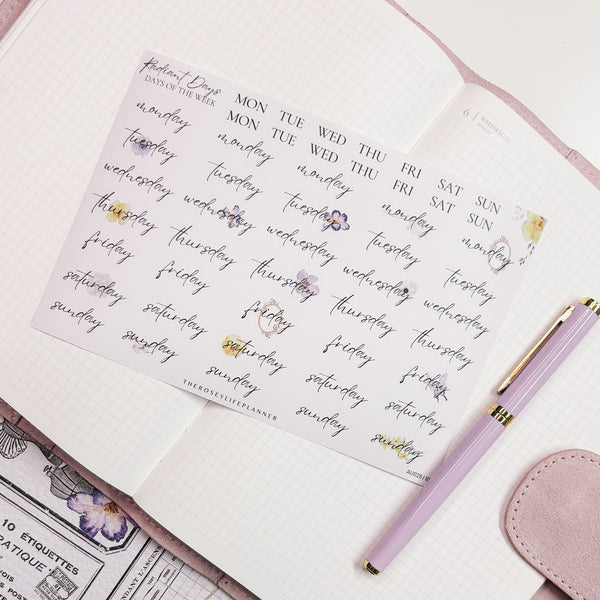 Radiant Days
DAYS OF THE WEEK
MON TUE WED THU FRI SAT SUN
MON TUE WED THU FRI SAT SUN
monday monday monday monday monday
tuesday tuesday tuesday tuesday tuesday
wednesday wednesday wednesday wednesday wednesday
thursday thursday thursday thursday thursday
friday friday friday friday friday
saturday saturday saturday saturday saturday
sunday sunday sunday sunday sunday
THEROSEYLIFEPLANNER
6 WEDNESDAY
10 ETIQUETTES